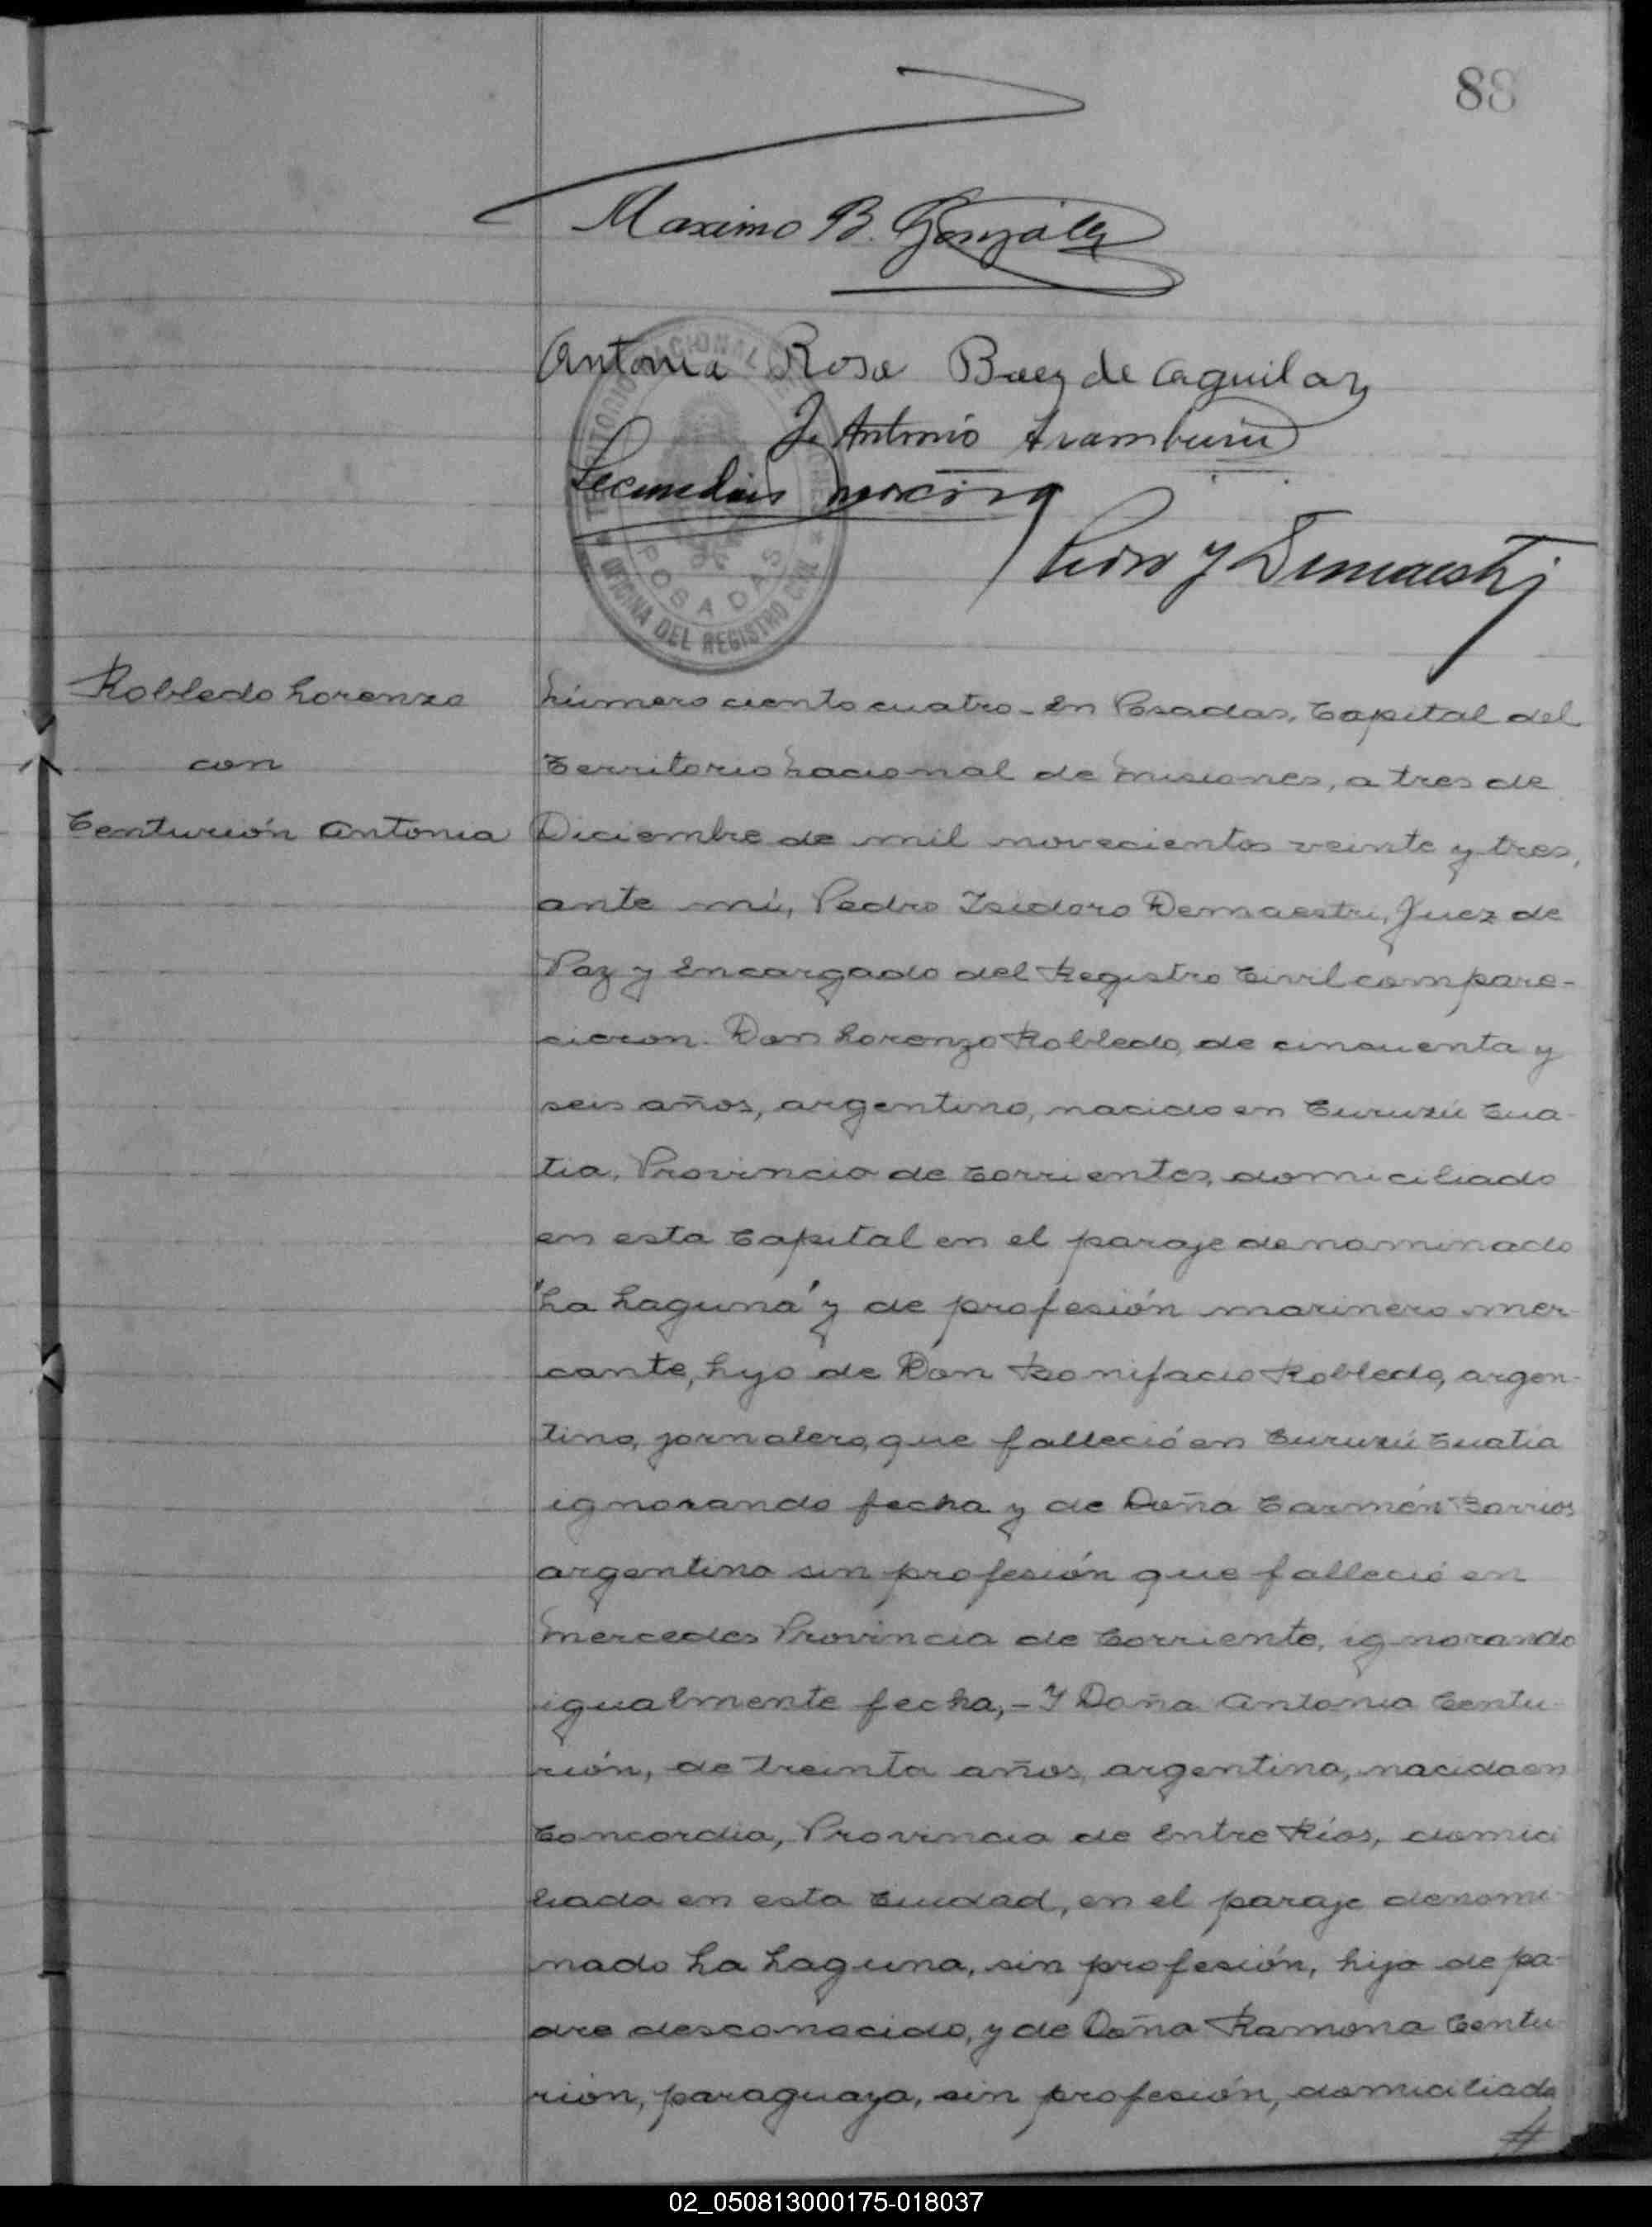 88
Maximo B. González
Antonia Rosa Baez de Aguilar
J. Antonio Aramburu
TERRITORIO NACIONAL DE MISIONES
POSADAS
OFICINA DEL REGISTRO CIVIL
Pedro Y Demaestri
Robledo Lorenzo
con
Centurión Antonia
Número ciento cuatro - En Posadas, Capital del
Territorio Nacional de Misiones, a tres de
Diciembre de mil novecientos veinte y tres,
ante mí, Pedro Isidoro Demaestri, Juez de
Paz y Encargado del Registro Civil compare-
cieron. Don Lorenzo Robledo, de cincuenta y
seis años, argentino, nacido en Curuzú Cua-
tia, Provincia de Corrientes, domiciliado
en esta Capital en el paraje denominado
"La Laguna" y de profesión marinero mer-
cante, hijo de Don Bonifacio Robledo, argen-
tino, jornalero, que falleció en Curuzú Cuatia
ignorando fecha y de Doña Carmén Barrios
argentina sin profesión que falleció en
Mercedes Provincia de Corriente, ignorando
igualmente fecha,- Y Doña Antonia Centu-
rión, de treinta años, argentina, nacida en
Concordia, Provincia de Entre Ríos, domici
liada en esta Ciudad, en el paraje denomi-
nado La Laguna, sin profesión, hija de pa-
dre desconocido, y de Doña Ramona Centu-
rión, paraguaya, sin profesión, domiciliada
#
02_050813000175-018037